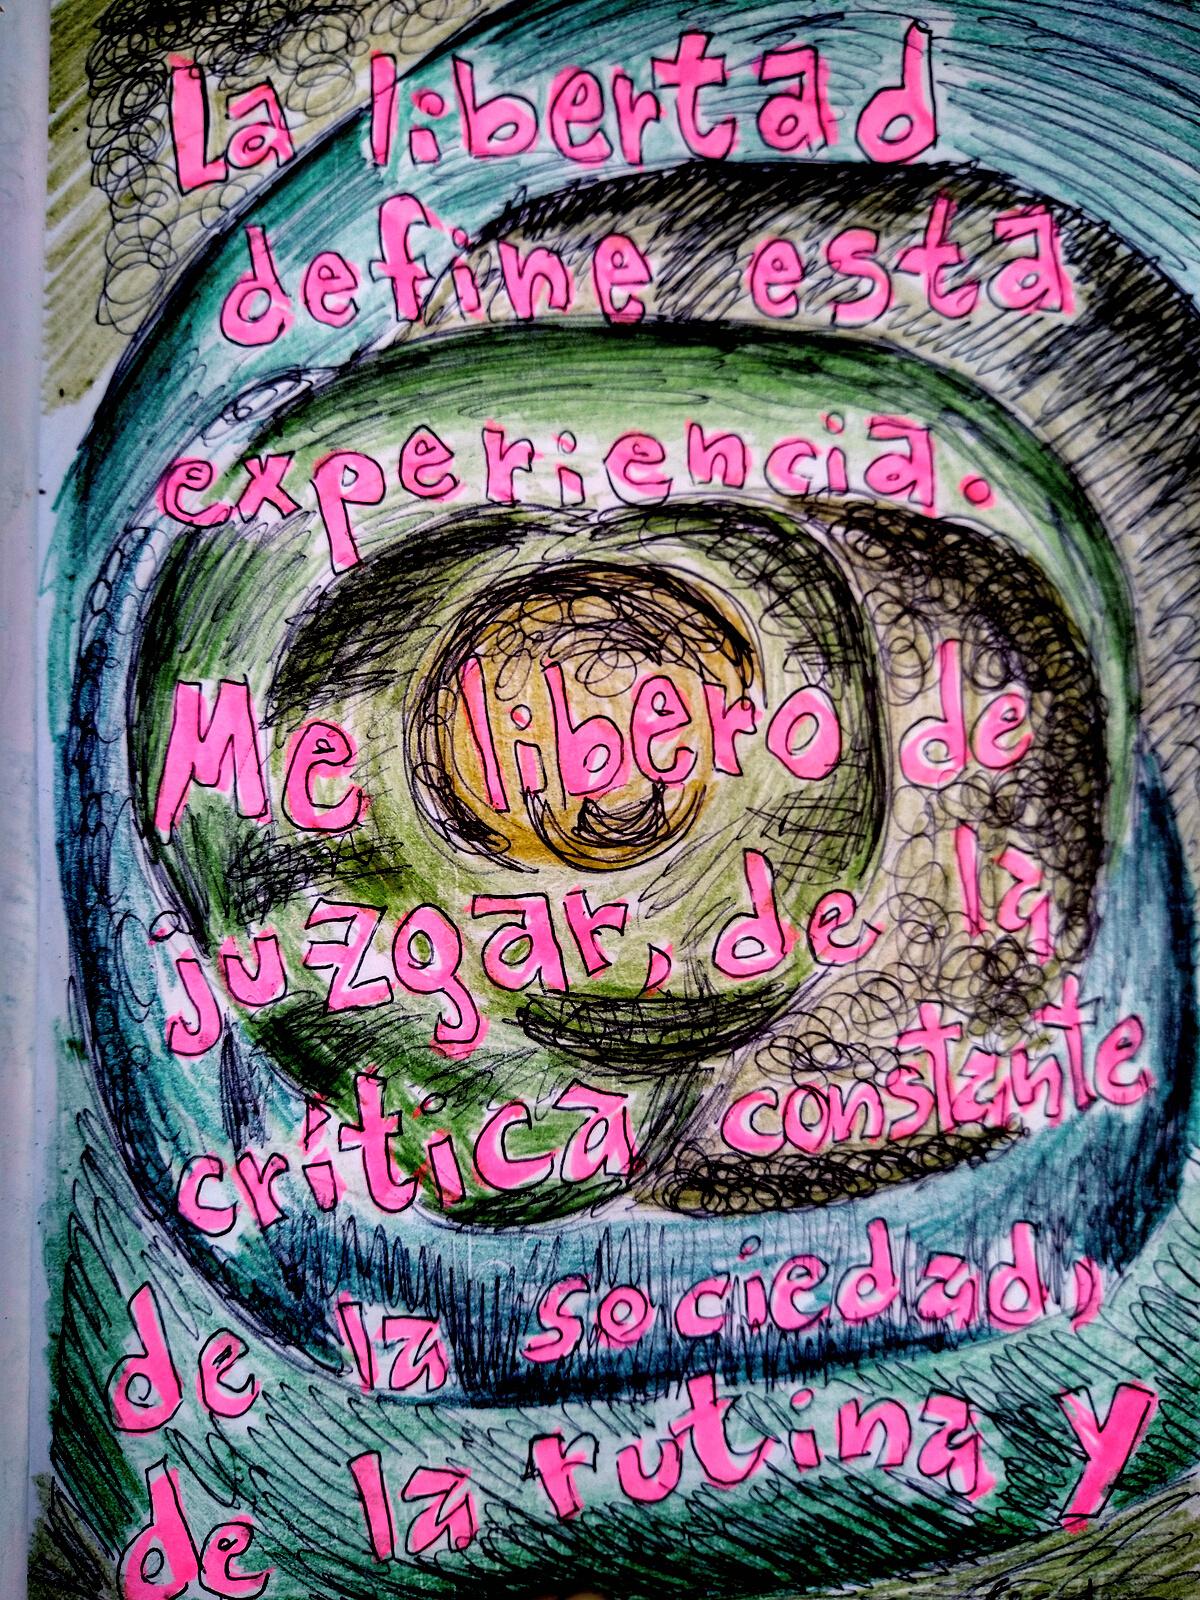 La libertad
define esta
experiencia.
Me libero de
juzgar, de la
crítica constante
de la sociedad,
de la rutina y
de